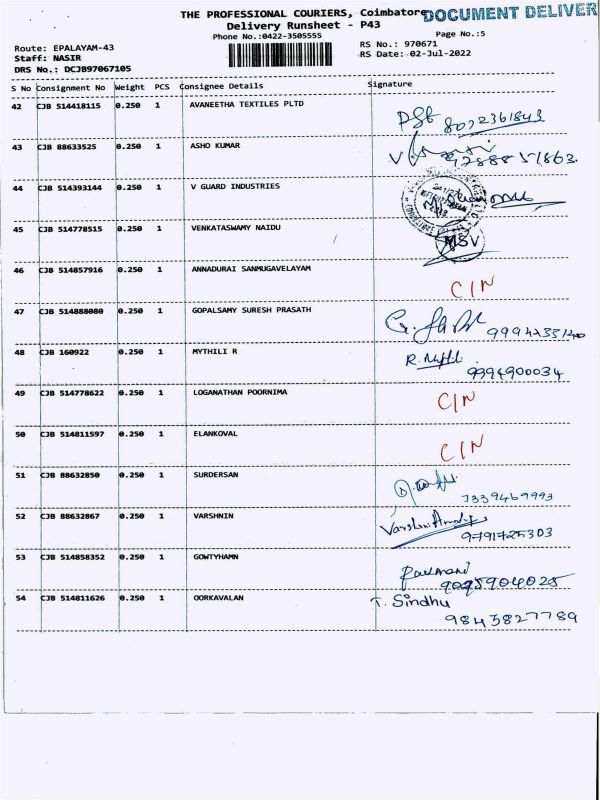 THE PROFESSIONAL COURIERS, Coimbatore
DOCUMENT DELIVER
Delivery Runsheet - P43
Phone No.:0422-3505555
Page No.:5
Route: EPALAYAM-43
RS No.: 970671
Staff: NASIR
RS Date: 02-Jul-2022
DRS No.: DCJB97067105
S No Consignment No Weight PCS Consignee Details Signature
42 CJB 514418115 0.250 1 AVANEETHA TEXTILES PLTD
43 CJB 88633525 0.250 1 ASHO KUMAR
44 CJB 514393144 0.250 1 V GUARD INDUSTRIES
45 CJB 514778515 0.250 1 VENKATASWAMY NAIDU
MSV
46 CJB 514857916 0.250 1 ANNADURAI SANMUGAVELAYAM
C/N
47 CJB 514888080 0.250 1 GOPALSAMY SURESH PRASATH
48 CJB 160922 0.250 1 MYTHILI R
9994900034
49 CJB 514778622 0.250 1 LOGANATHAN POORNIMA
C/N
50 CJB 514811597 0.250 1 ELANKOVAL
C/N
51 CJB 88632850 0.250 1 SURDERSAN
7339469993
52 CJB 88632867 0.250 1 VARSHNIN
9791725303
53 CJB 514858352 0.250 1 GOWTYHAMN
9095904025
54 CJB 514811626 0.250 1 OORKAVALAN
T. Sindhu
9845827789